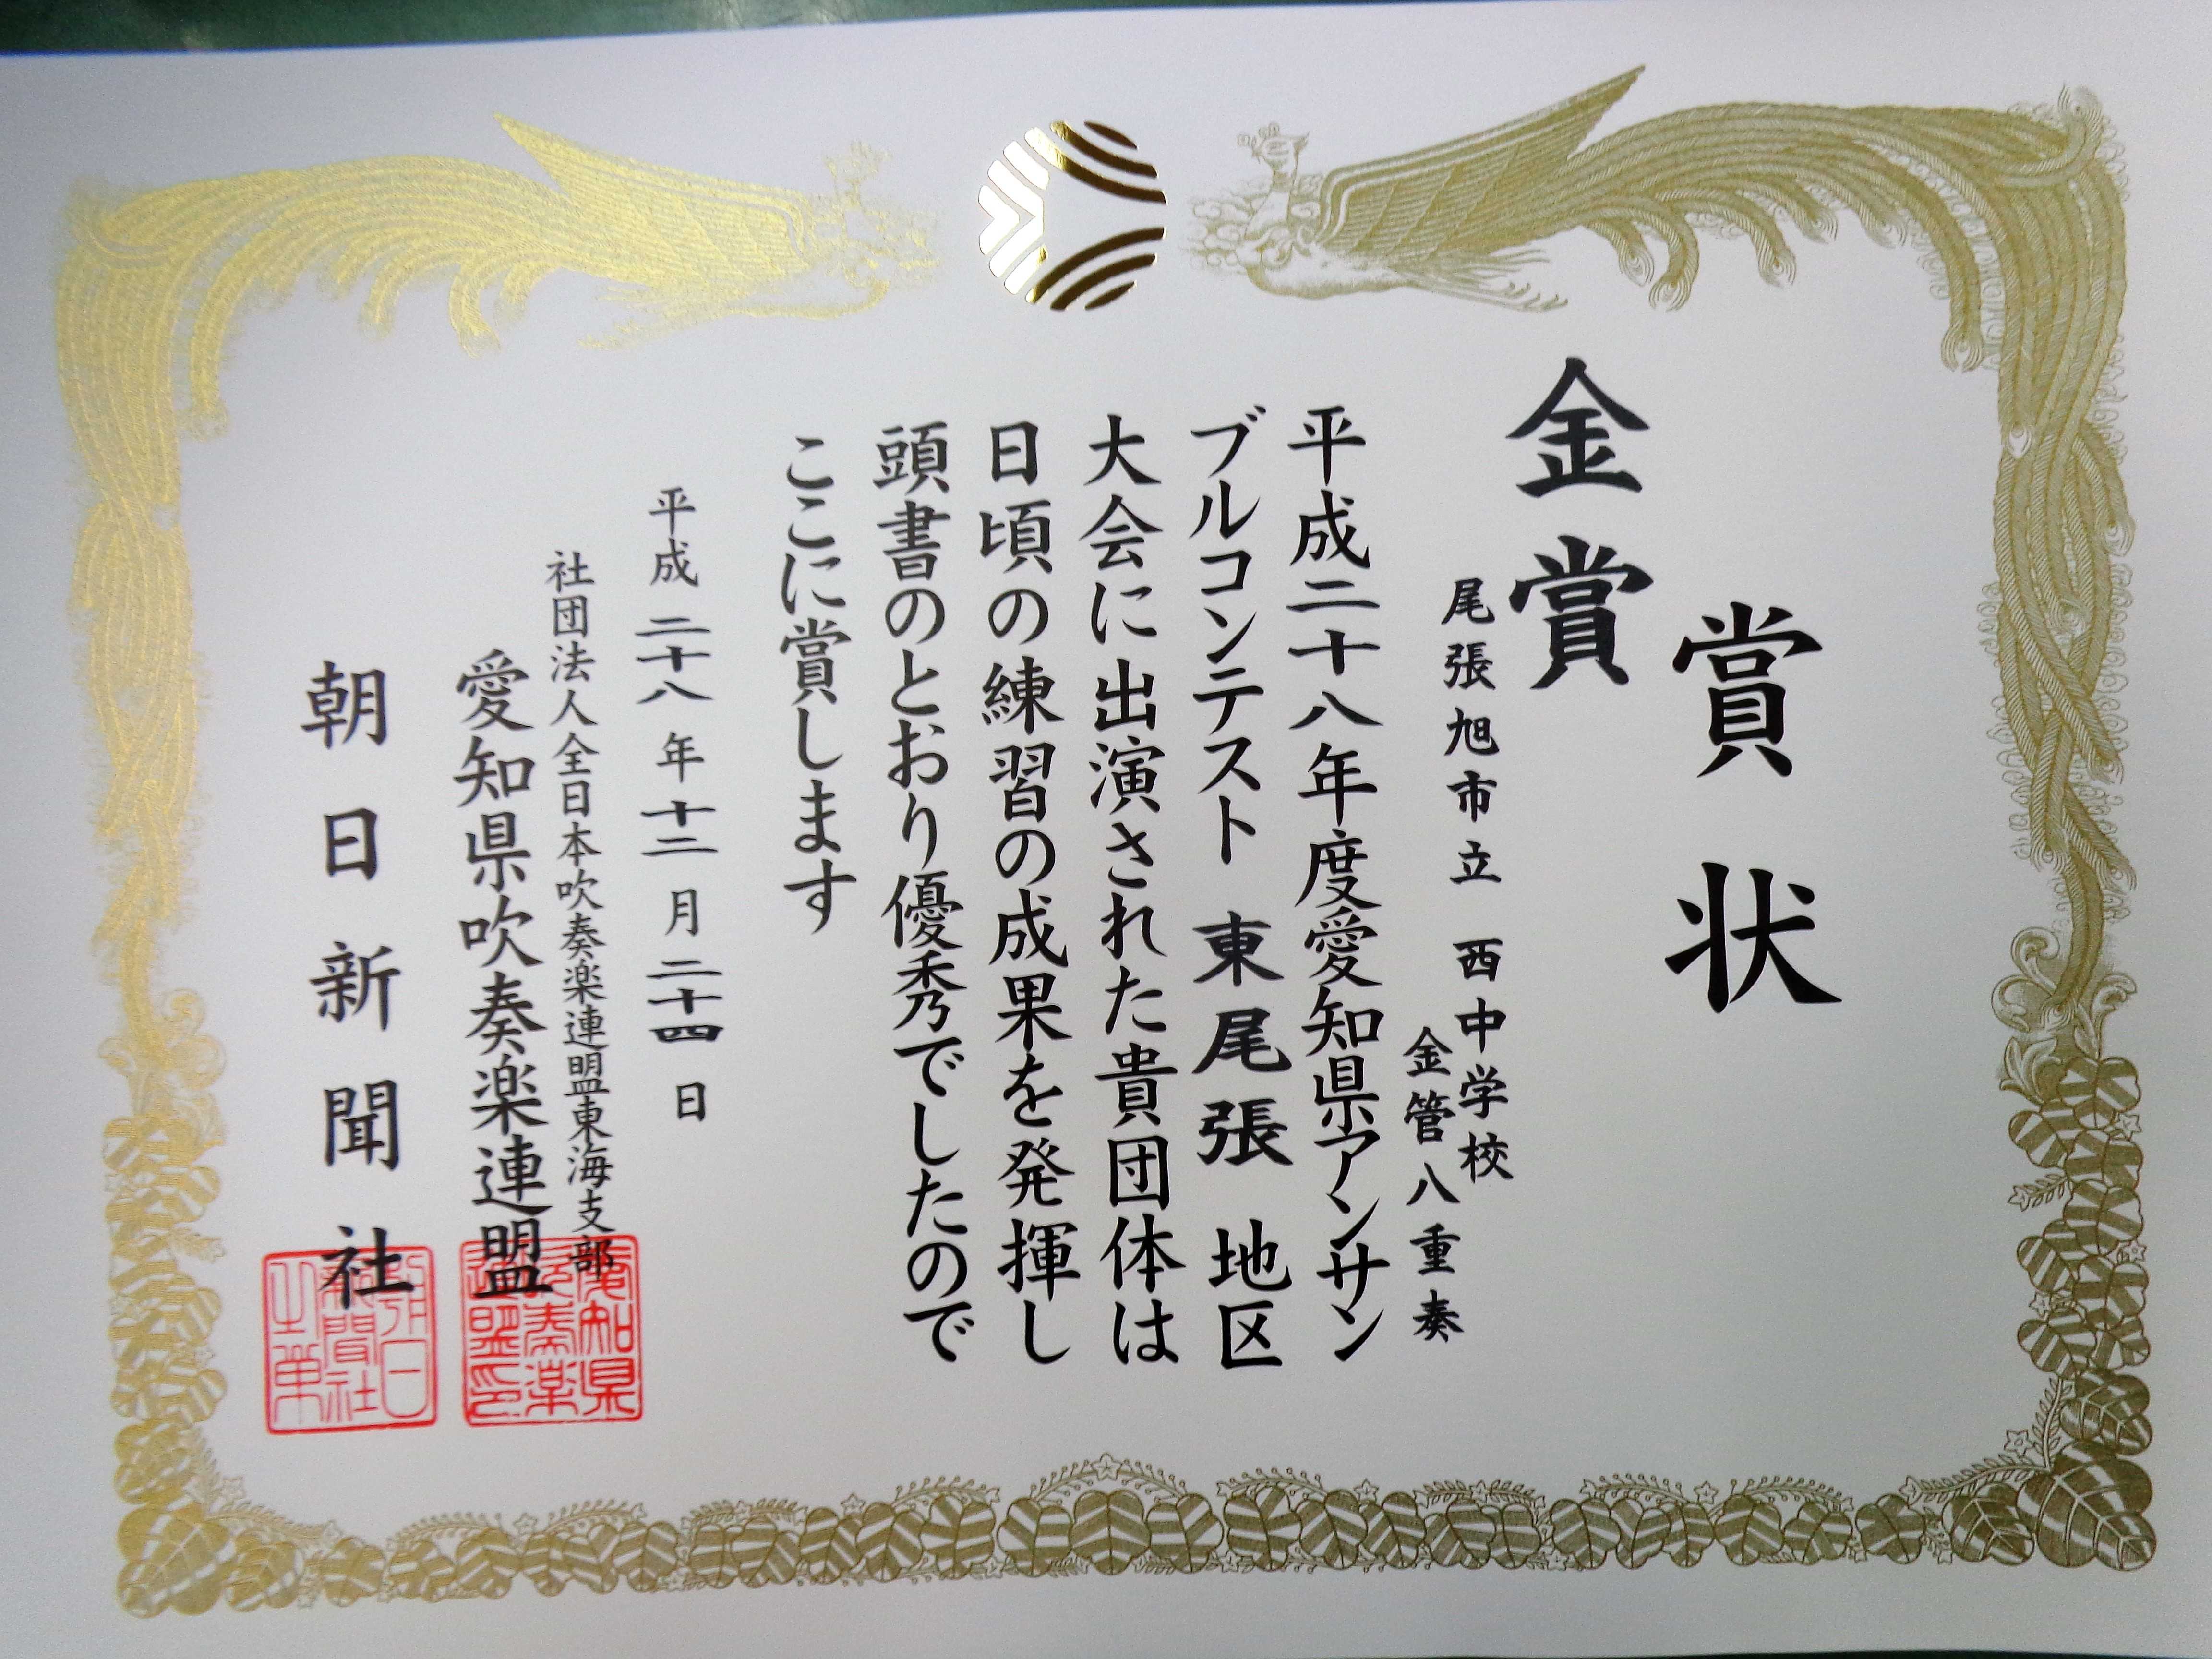 賞状
金賞
尾張旭市立 西中学校
金管八重奏
平成二十八年度愛知県アンサン
ブルコンテスト 東尾張 地区
大会に出演された貴団体は
日頃の練習の成果を発揮し
頭書のとおり優秀でしたので
ここに賞します
平成二十八年十二月二十四日
社団法人全日本吹奏楽連盟東海支部
愛知県吹奏楽連盟
朝日新聞社